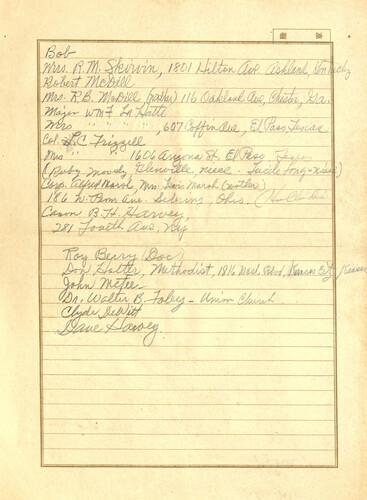 Bob
Mrs. R. M. Skirvin, 1801 Hilton Ave. Ashland, Kentucky
Robert McDill
Mrs. R. B. McDill (mother) 116 Oakland Ave, Chester, 
Major Wm F. L. 
Mrs " " " , 607 Coffin Ave, El Paso, Texas
Col. L. C. Frizzell
Mrs " 1606 Arizona St. El Paso, Texas
(Ruby Moody, Glenville, niece - Long - niece)
Corp. Alfred Marsh, Mrs. Marsh (mother)
186 W. Penn Ave. Sebring, Ohio.
Canon B. H. Harvey,
281 Fourth Ave, Ny
Roy Berry (Doc)
Don Halter, Methodist, 1816 Kansas City, Kansas
John 
Dr. Walter B. Foley - Union Church
Clyde DeWitt
Dave Harvey